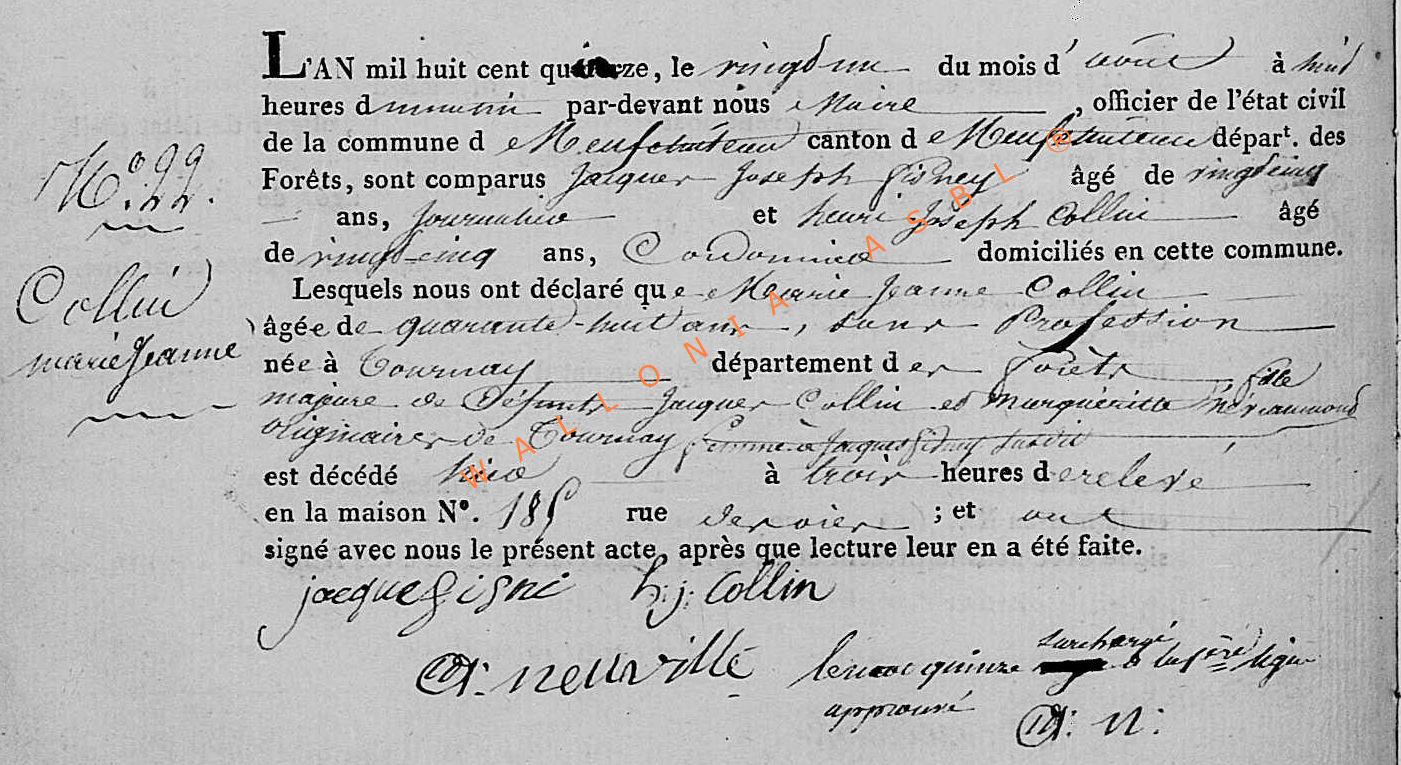 L'AN mil huit cent quinze, le vingt un du mois d'août à huit
heures du matin par-devant nous Maire, officier de l'état civil
de la commune de Neufchâteau canton de Neufchâteau départ. des
N°. 22.
Forêts, sont comparus Jacques Joseph Gisney âgé de vingt cinq
ans, journalier et henri Joseph Collin âgé
de vingt-cinq ans, Cordonnier domiciliés en cette commune.
Collin
marie Jeanne
Lesquels nous ont déclaré que Marie Jeanne Collin
âgée de quarante-huit ans, sans Profession
née à Tournay département des forêts fille
majeure de Défunts Jacques Collin et Marguéritte
originaires de Tournay femme à Jacques Gisney susdit
est décédé hier à trois heures de relevé
en la maison N°. 185 rue ; et ont
signé avec nous le présent acte, après que lecture leur en a été faite.
jacque gisni h: j: Collin
neuville le mot quinze surchargé à la 1ère ligne
approuvé
N:
WALLONIA ASBL ®